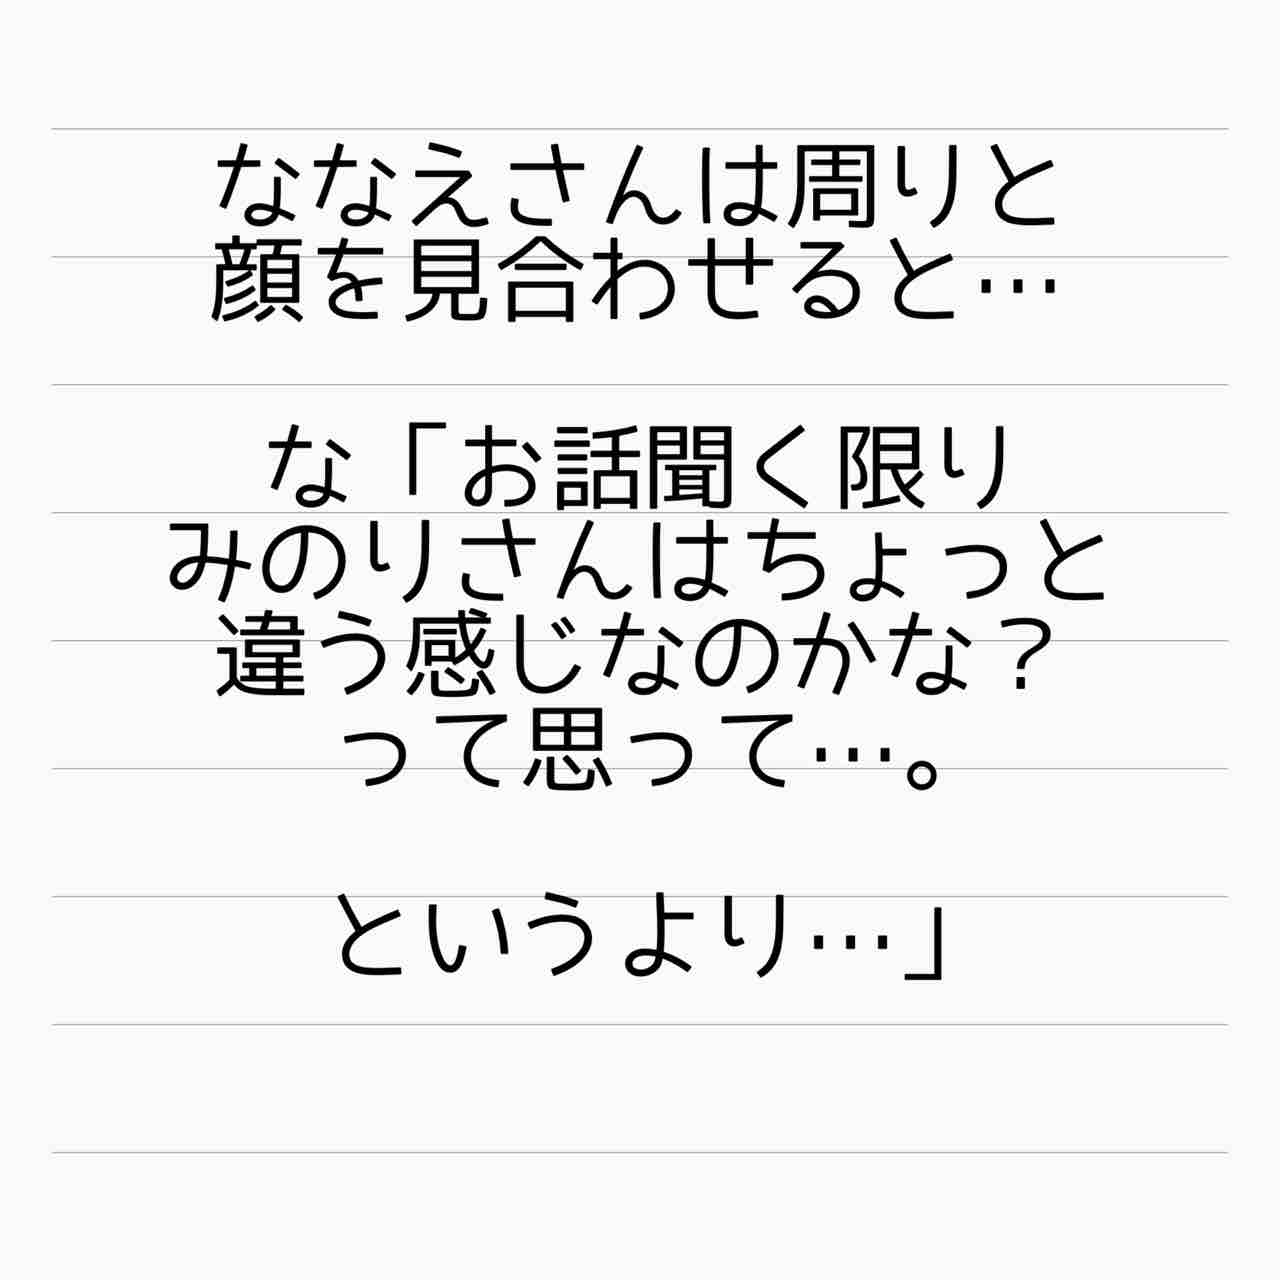 ななえさんは周りと
顔を見合わせると…
な「お話聞く限り
みのりさんはちょっと
違う感じなのかな？
って思って…。
というより…」